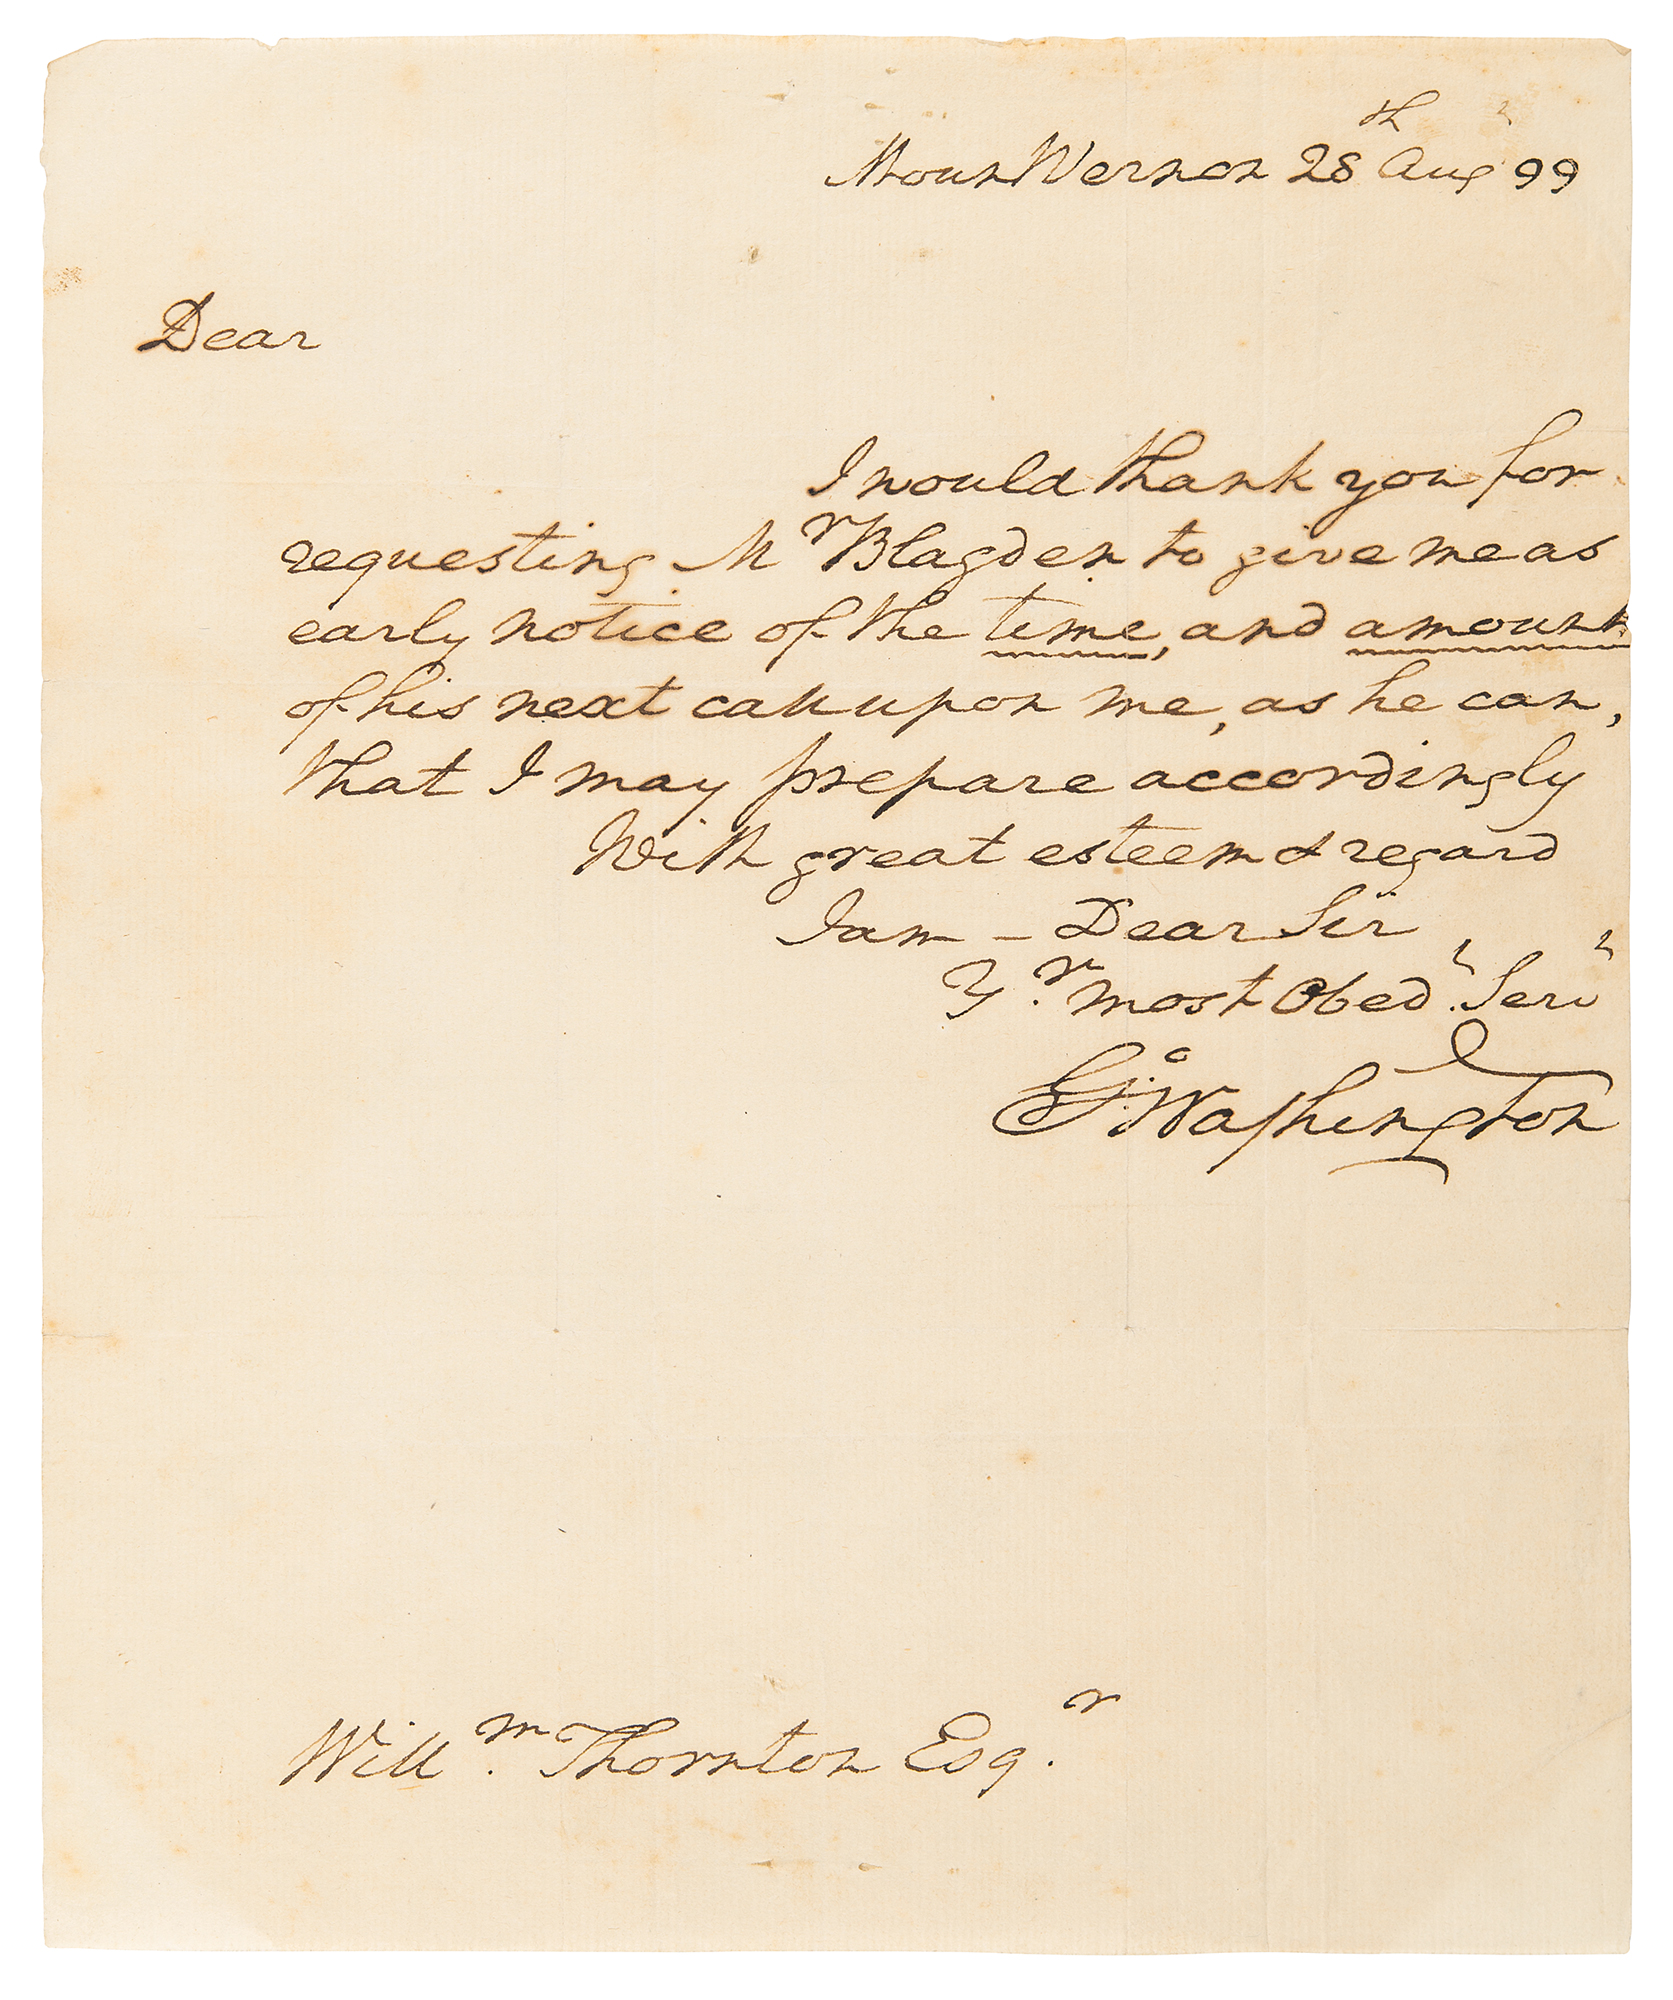 Mount Vernon 28th Augt 99
Dear
I would thank you for
requesting Mr Blagden to give me as
early notice of the time, and amount
of his next call upon me, as he can,
that I may prepare accordingly
With great esteem & regard
I am — Dear Sir
Yr. most Obedt. Servt
Go: Washington
Willm. Thornton Esqr.